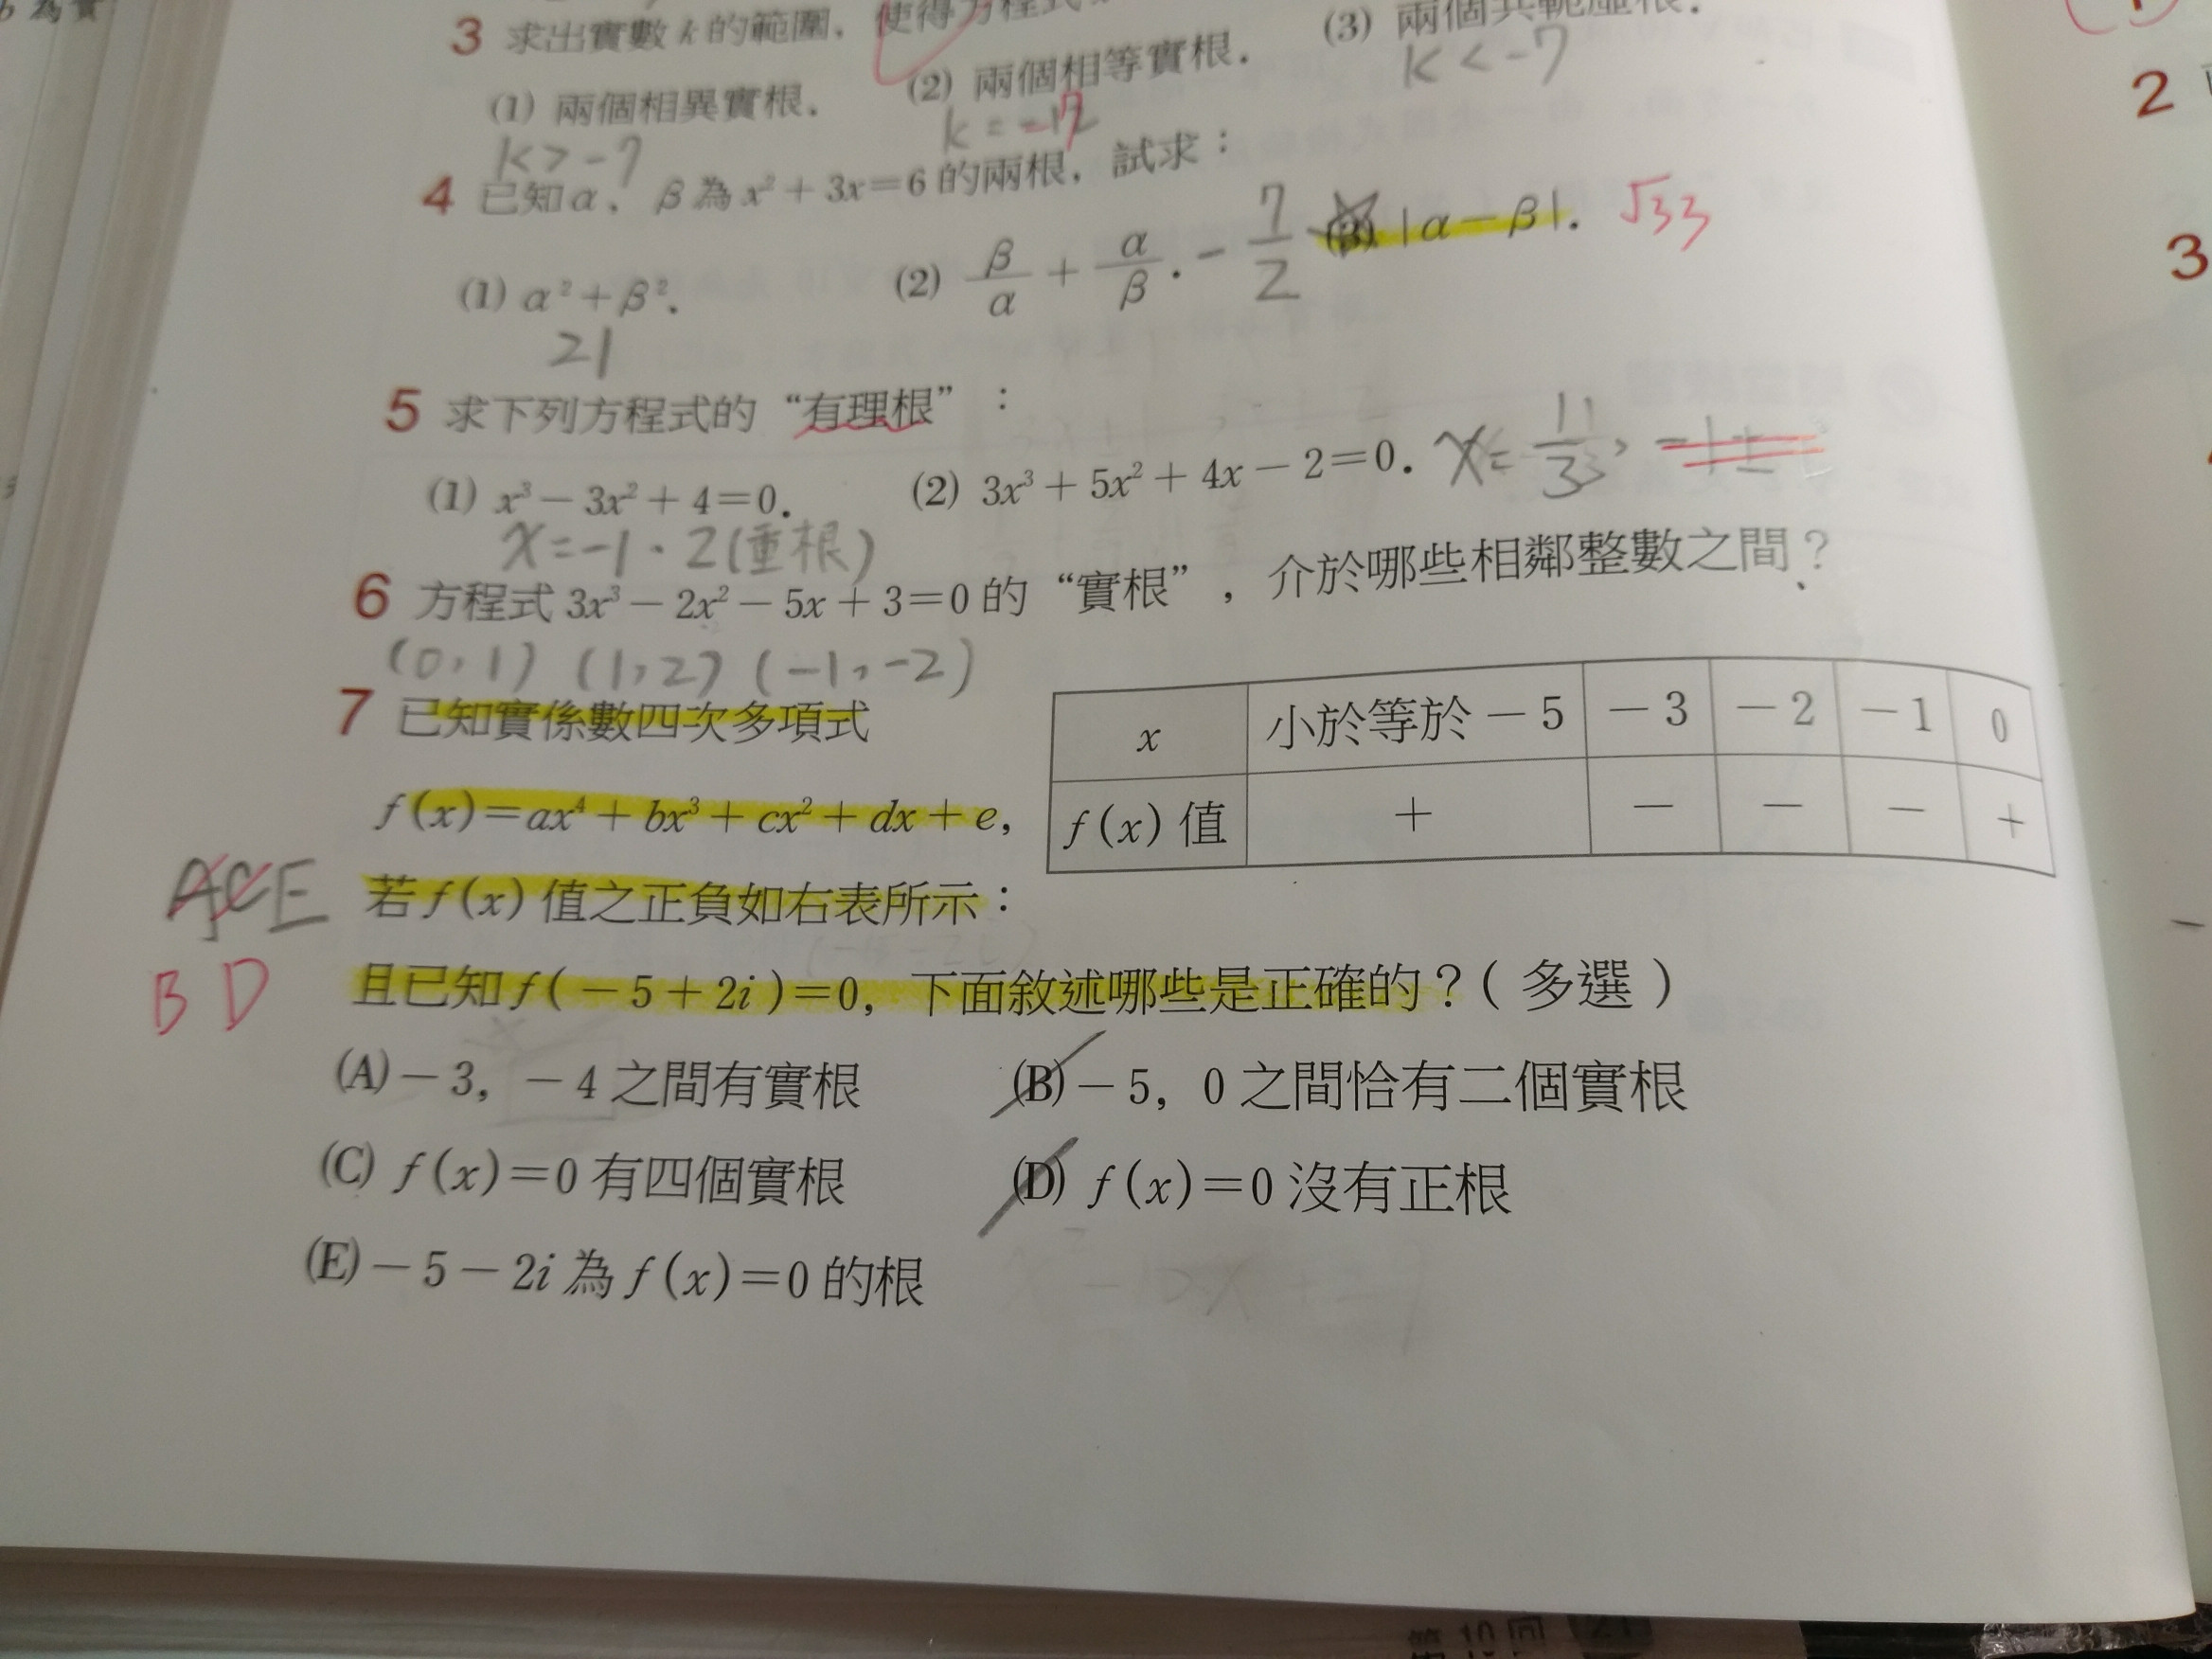 為實
3 求出實數k的範圍，使得方程式
(1) 兩個相異實根． (2) 兩個相等實根． (3) 兩個共軛虛根．
k>-7 k=-7 k<-7
4 已知α、β為x²+3x=6的兩根，試求：
(1) α²+β². (2) β/α + α/β. -7/2 (3) |α-β|. √33
21
5 求下列方程式的“有理根”：
(1) x³-3x²+4=0. (2) 3x³+5x²+4x-2=0. x=
x=-1．2(重根)
6 方程式3x³-2x²-5x+3=0的“實根”，介於哪些相鄰整數之間？
(0,1) (1,2) (-1,-2)
7 已知實係數四次多項式
f(x)=ax⁴+bx³+cx²+dx+e,
若f(x)值之正負如右表所示：
x 小於等於-5 -3 -2 -1 0
f(x)值 + - - - +
ACE
BD
且已知f(-5+2i)=0，下面敘述哪些是正確的？(多選)
(A) -3，-4之間有實根 (B) -5，0之間恰有二個實根
(C) f(x)=0有四個實根 (D) f(x)=0沒有正根
(E) -5-2i為f(x)=0的根
2
3